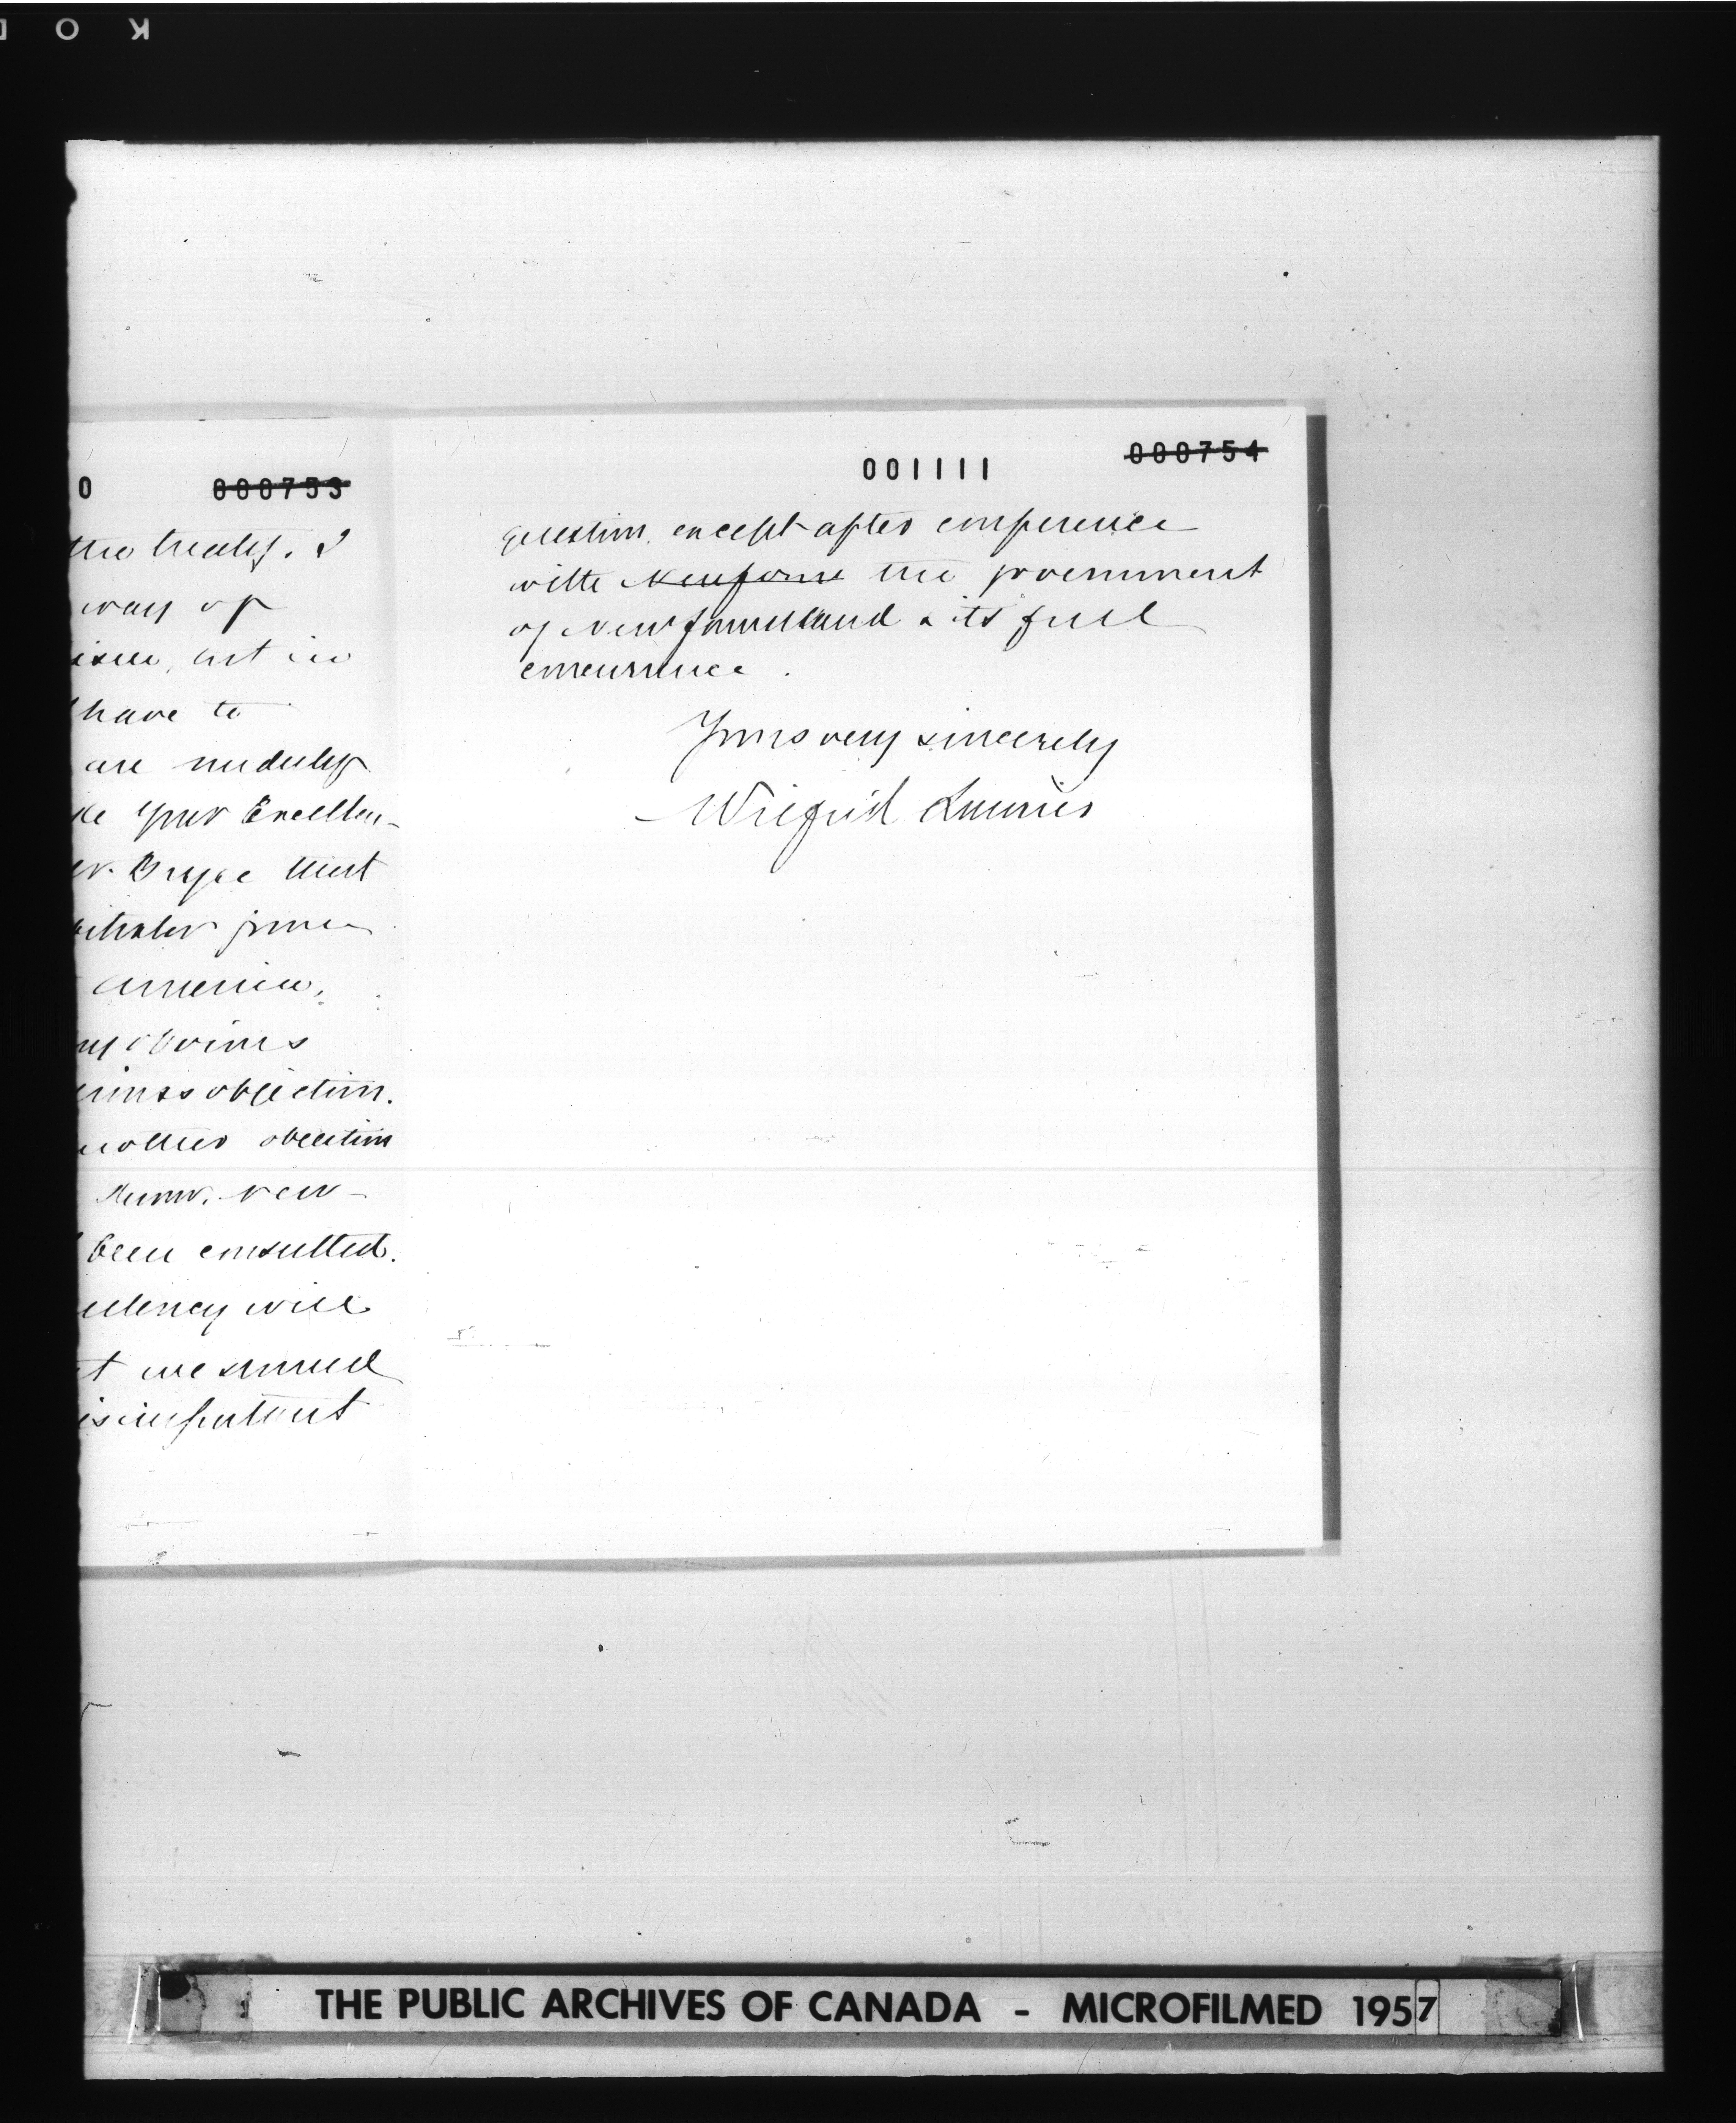 K O D
0 000753
the treaty. I
way of
have to
are unduly
Your Excellen-
Mr. Bryce that
arbitrator from
America,
obvious
objection.
another objection
New-
been consulted.
Excellency will
t we should
important
001111 000754
question, except after conference
with Newfoun the government
of Newfoundland & its full
concurrence.
Yours very sincerely
Wilfrid Laurier
THE PUBLIC ARCHIVES OF CANADA - MICROFILMED 1957